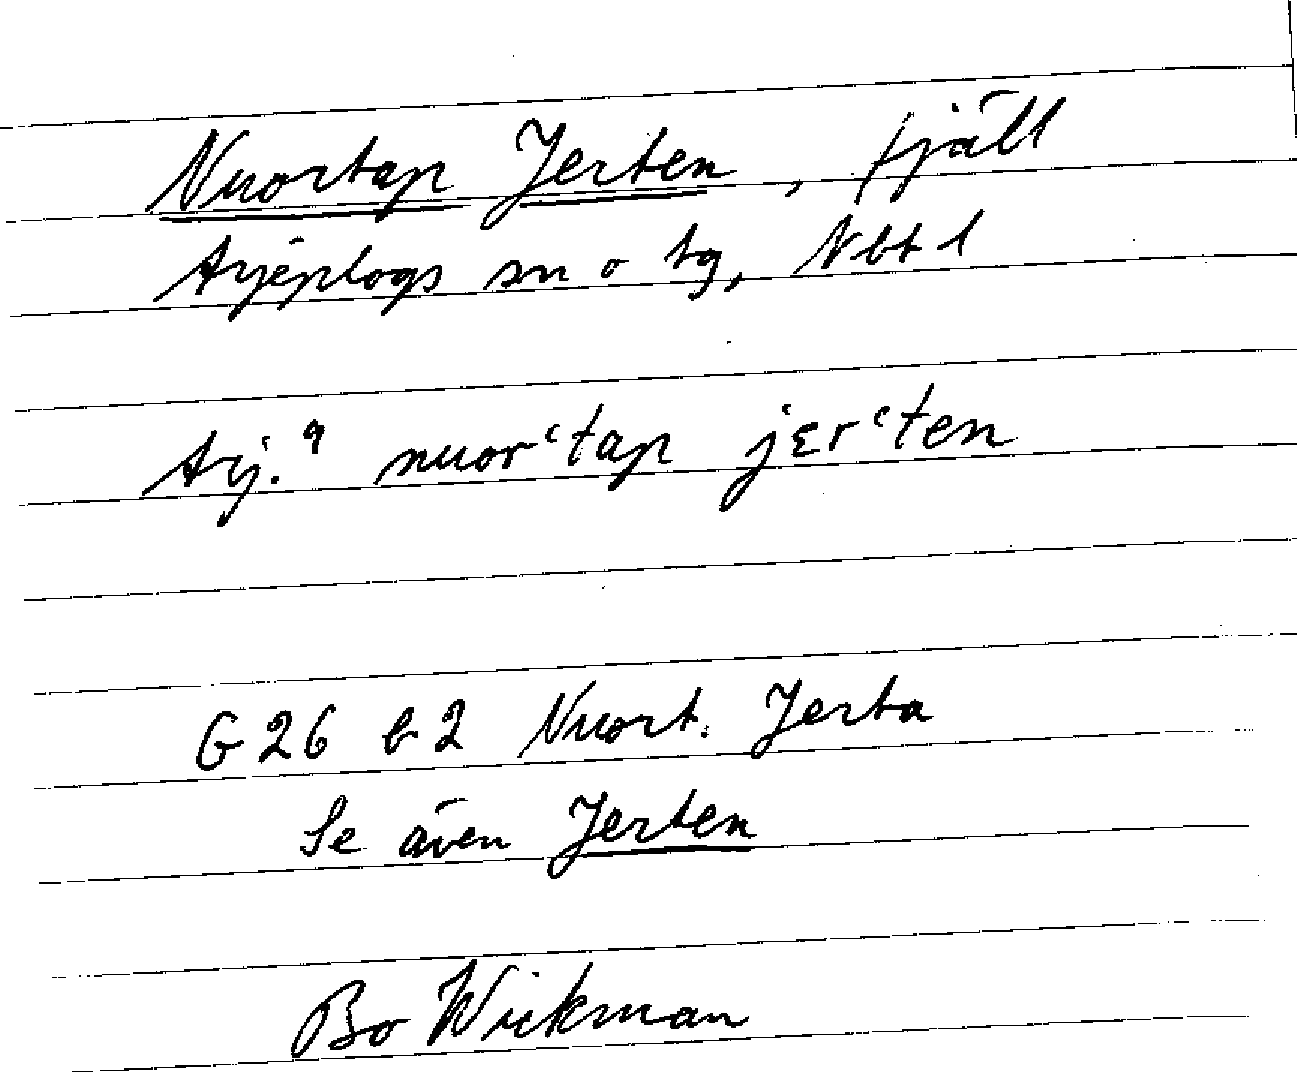 Nuortap Jerten, fjäll
Arjeplogs sn o tg, Nbt l
Arj.9 nuorʿtap jɛrʿten
G26 b2 Nuort. Jerta
Se även Jerten
Bo Wickman